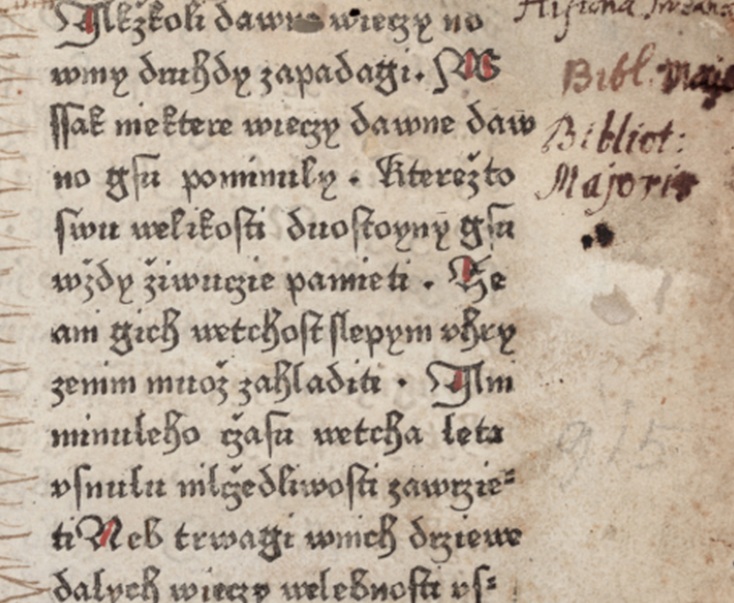 Acžkoli dawne wieczy no
wmy druhdy zapadagi. W
ssak niektere wieczy dawne daw
no gsu pominuly. Kterežto
swu welikosti duostoyny gsu
wždy žiwuczie pamieti. Že
ani gich wetchost slepym vhry
zenim muož zahladiti. Ani
minuleho czasu wetcha leta
vsnulu mlčedliwosti zawrzie=
ti Neb trwagi wnich drziewe
dalych wieczy welebnosti vs=
Bibl. Maj
Bibliot:
Majoris